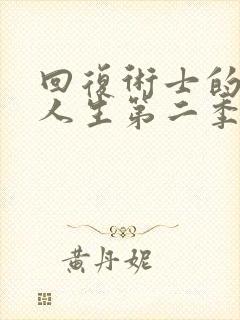 回復術士的
人生第二季
黄丹妮